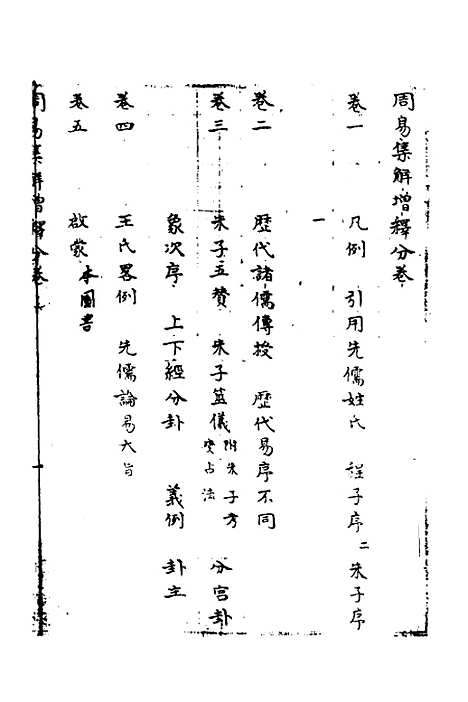 周易集解增釋分卷
卷一　凡例　引用先儒姓氏　程子序二　朱子序
一
卷二　歷代諸儒傳授　歷代易序不同
卷三　朱子五贊　朱子筮儀　附朱子考變占法　分宮卦
象次序　上下經分卦　義例　卦主
卷四　王氏畧例　先儒論易大旨
卷五　啟蒙　本圖書
周易集解增釋分卷